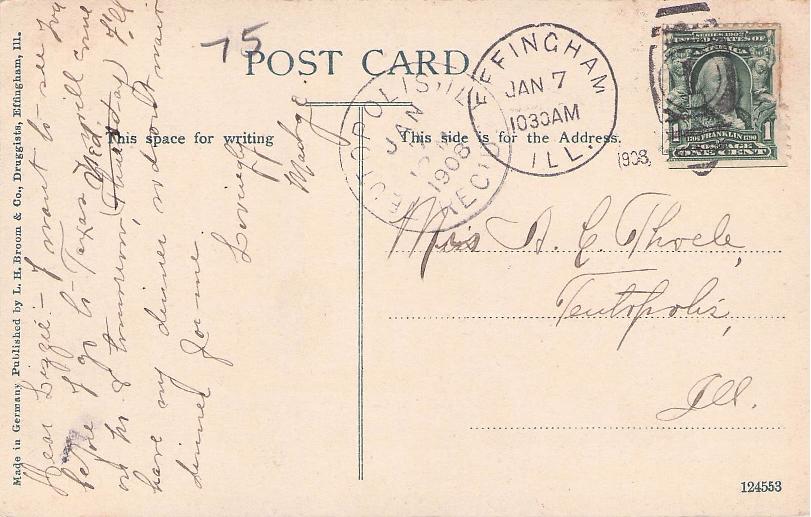 75
POST CARD
This space for writing
This side is for the Address.
EFFINGHAM
JAN 7
1030AM
ILL.
1908
TEUTOPOLIS, ILL.
JAN
1908
REC'D
SERIES 1902
UNITED STATES OF AMERICA
1706 FRANKLIN 1790
1 1
POSTAGE
ONE CENT
Dear Lizzie:- I want to see you
before I go to Texas & will come
out
tomorrow, Wed. (Tuesday) I'll
have my dinner so don't wait
dinner for me
Lovingly
Madge.
Miss A. C. Thoele,
Teutopolis,
Ill.
Made in Germany Published by L. H. Broom & Co., Druggists, Effingham, Ill.
124553